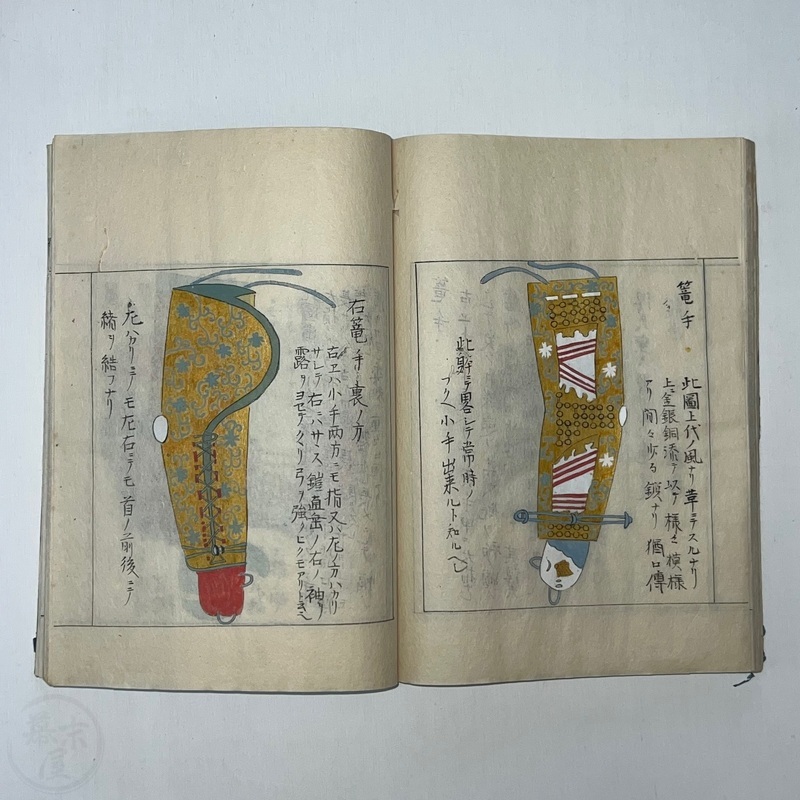 籠手
此圖上代ノ風ナリ草ニテスルナリ
上ニ金銀銅漆ヲ以テ様々模様
アリ間々少ル鎖ナリ 猶口傳
此躰ニテ畧シテ常時ノ
小手出来ルト知ルヘシ
右籠手裏ノ方
古ヱハ小手両方ニモ指又ハ左ノ方ハカリ
サシテ右ニハサス鎧直垂ノ右ノ袖ノ
露ヲヨセテクヽリ弓ヲ強クヒクモアリト
左ハカリニテモ左右ニテモ首ノ前後ニテ
緒ヲ結フナリ
幕末屋